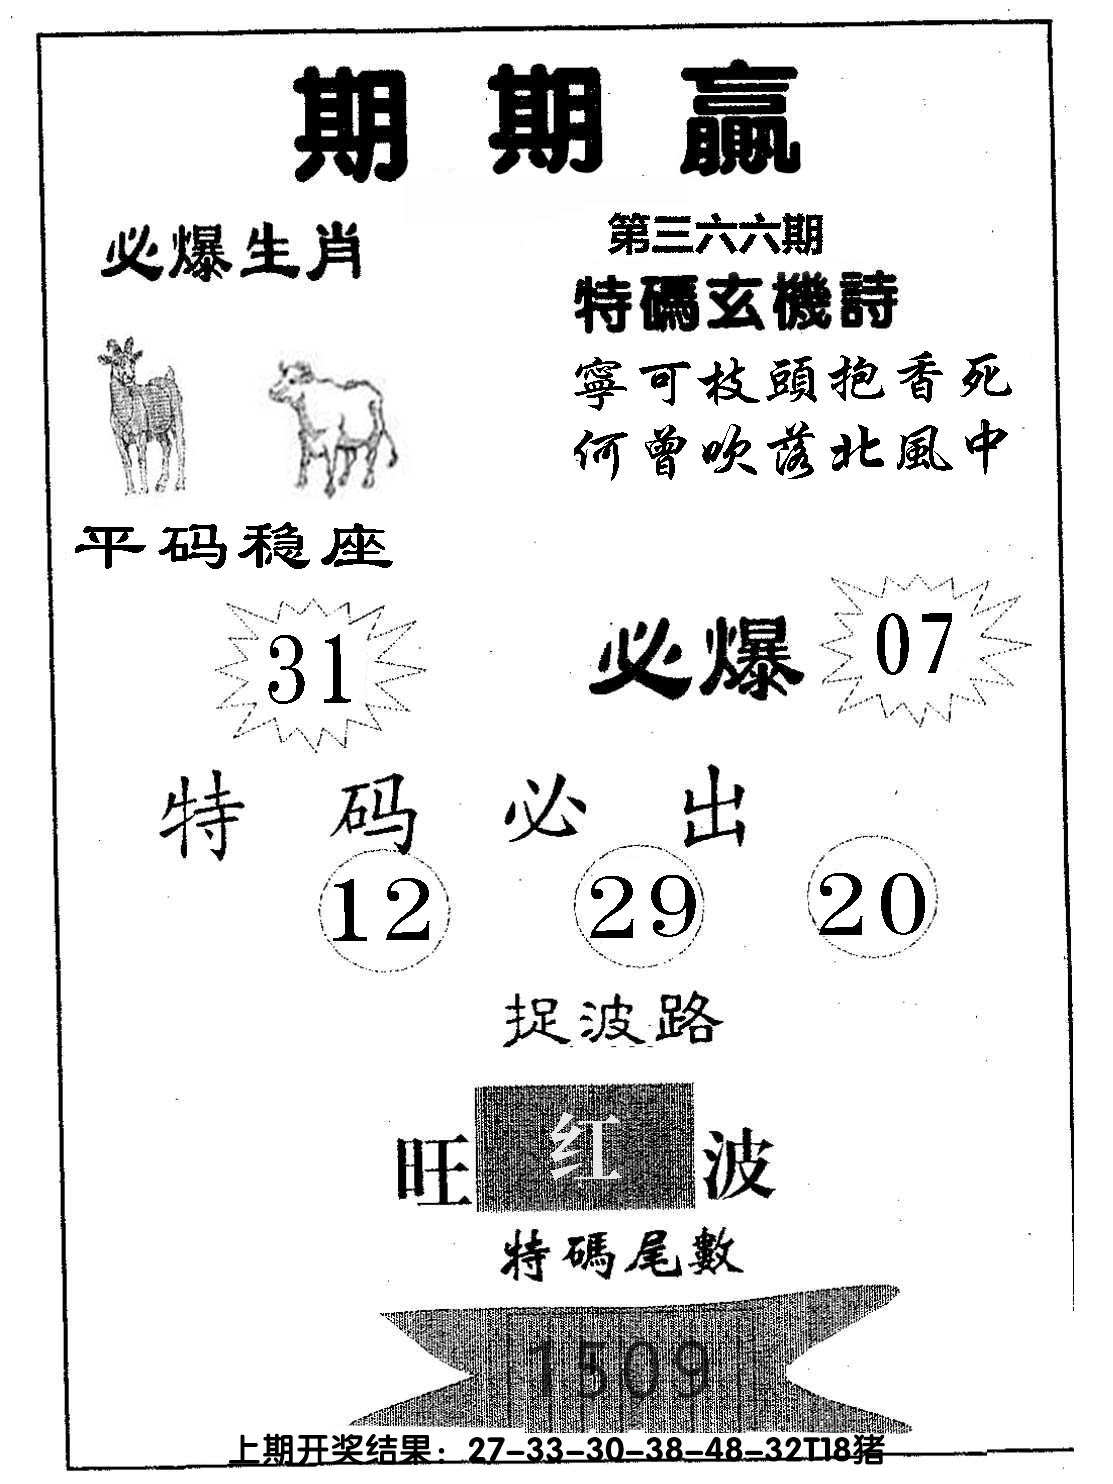 期期贏
必爆生肖
第三六六期
特碼玄機詩
寧可枝頭抱香死
何曾吹落北風中
平码稳座
31
必爆 07
特码必出
12 29 20
捉波路
旺红波
特碼尾數
1509
上期开奖结果：27-33-30-38-48-32T18猪